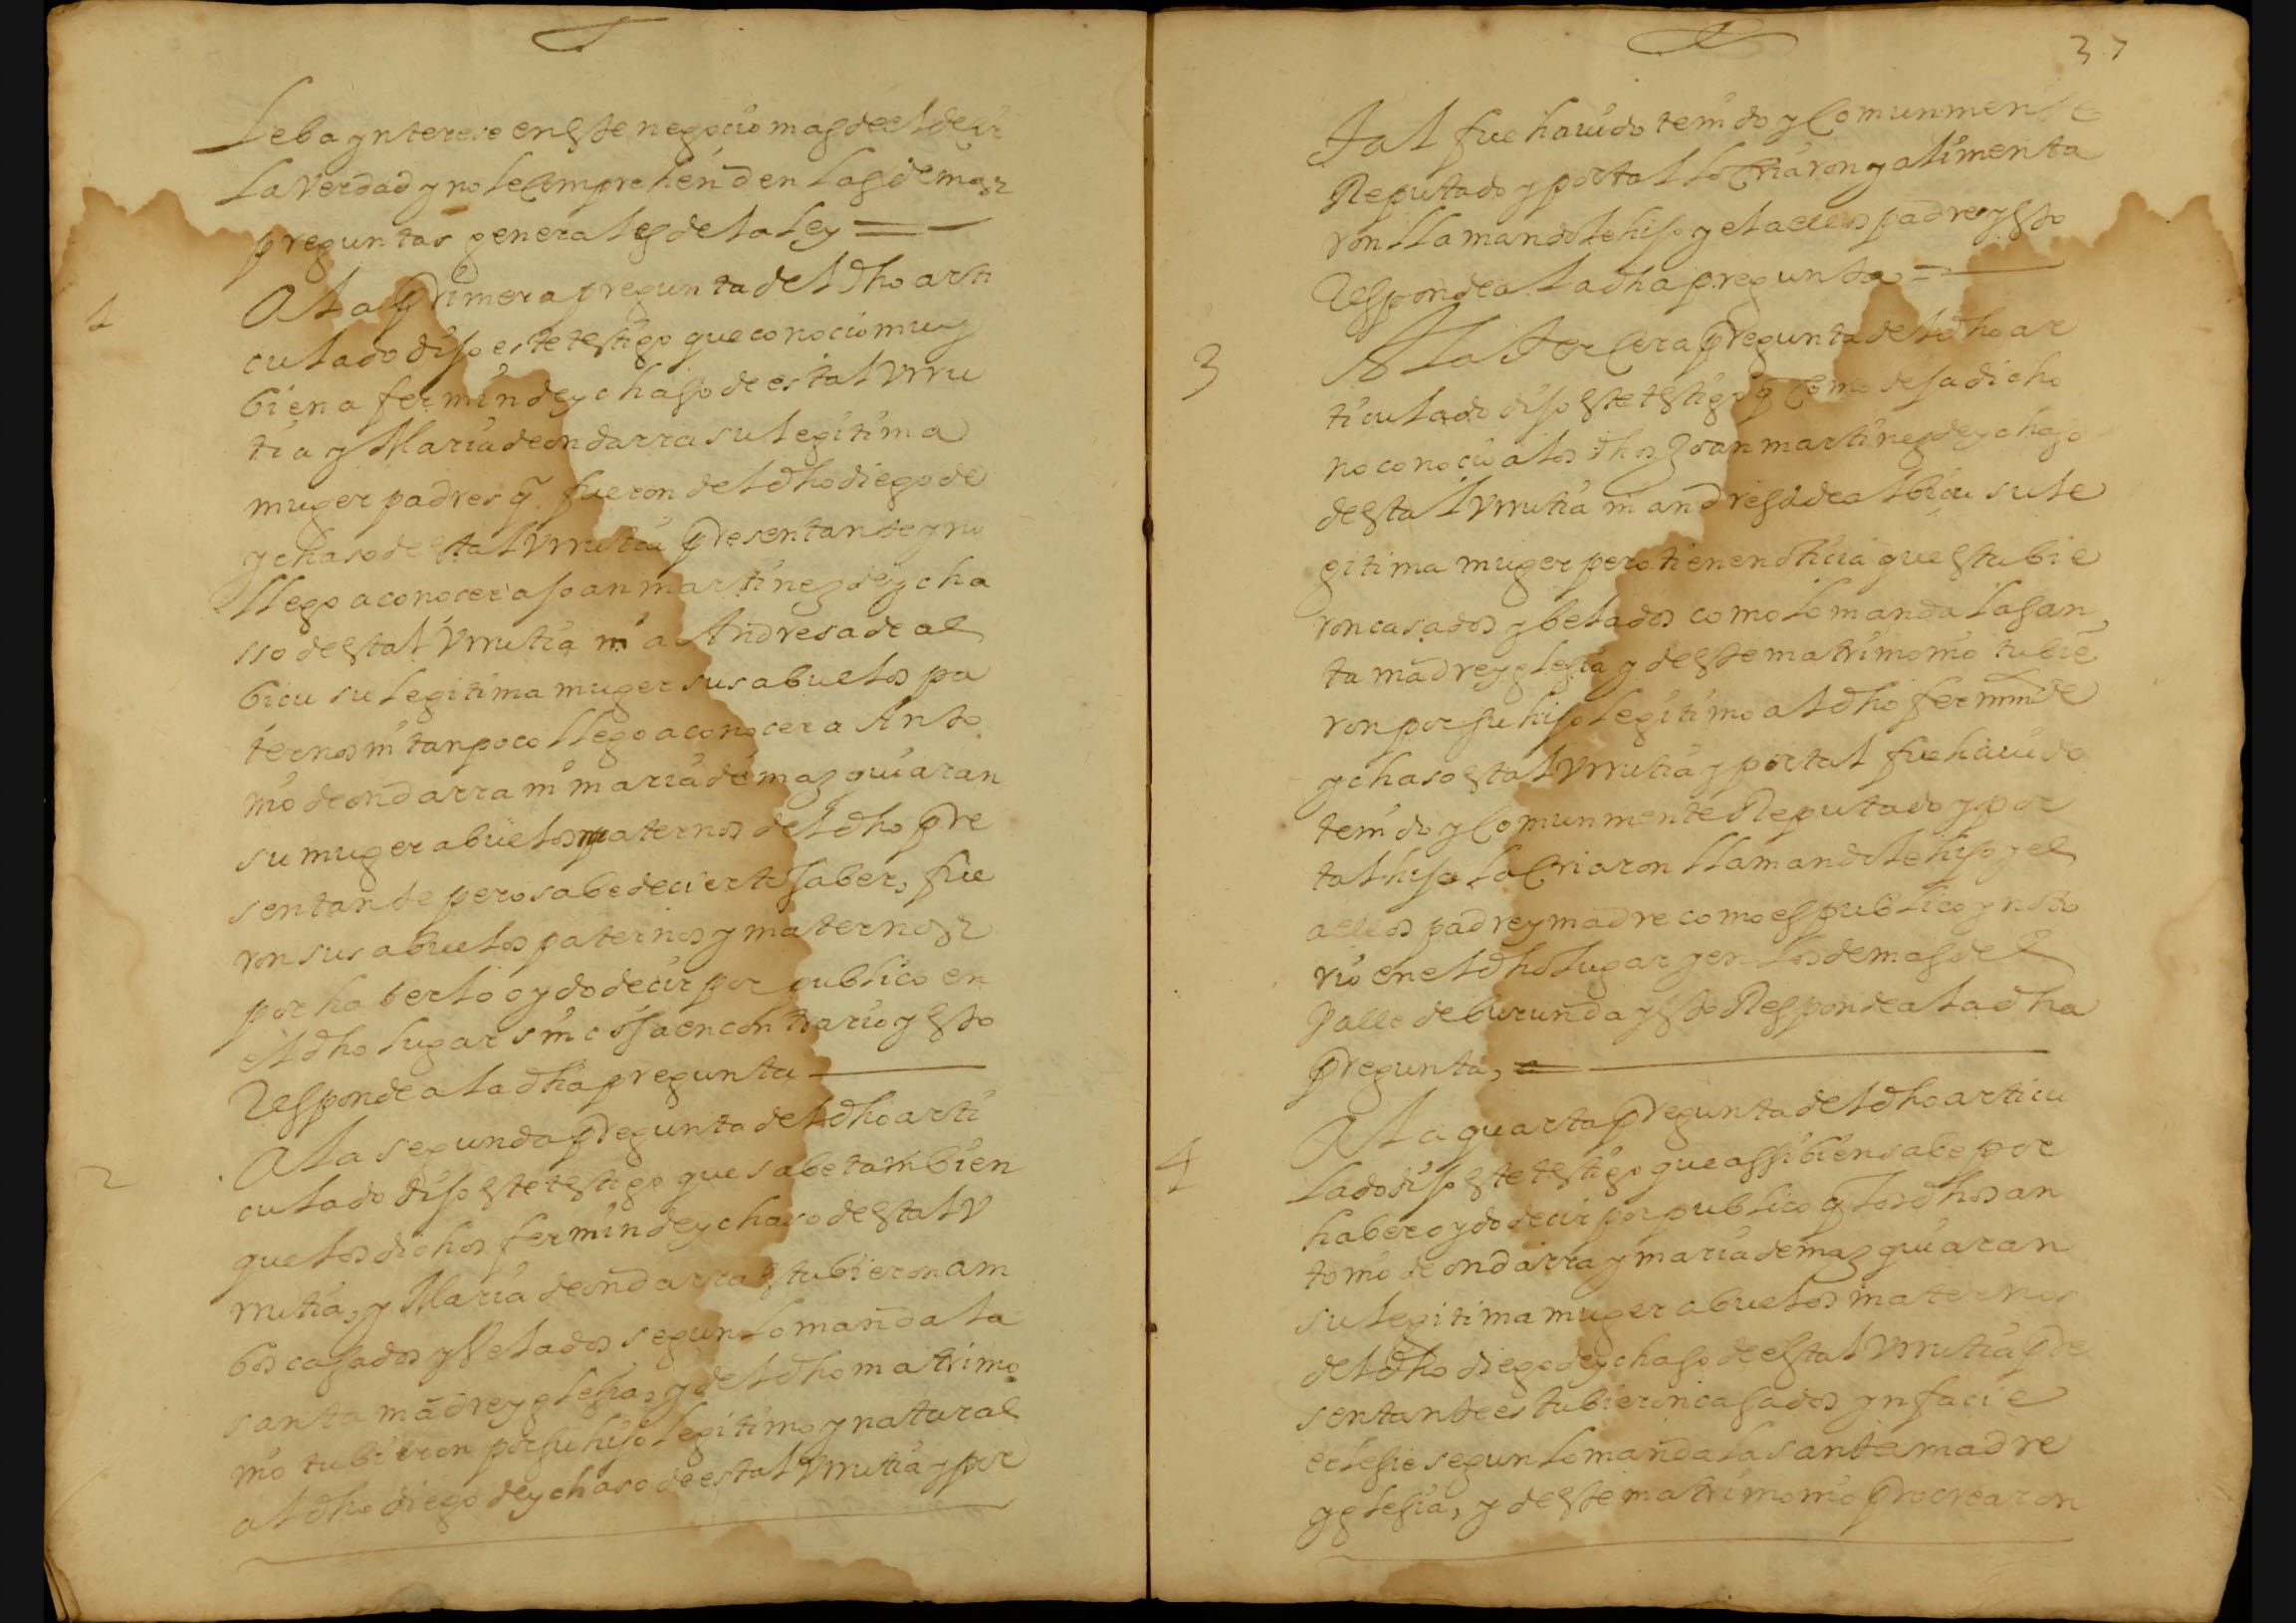 Leba ynterese en este negocio mas de el decir
la verdad y no le comprehenden las demas
preguntas generales de la ley
1
A la primera pregunta del dho arti
culado dijo este testigo que conocio muy
bien a fermin de ychaso de estal Vrru
tia y Maria de ondarra su legitima
muger padres q fueron del dho diego de
ychaso de estal Vrrutia presentante y no
llego a conocer a Joan martinez de ycha
sso de estal Vrrutia ni a Andresa de al
bicu su legitima muger sus abuelos pa
ternos ni tanpoco llego a conocer a Anto
nio de ondarra ni maria de mazquiaran
su muger abuelos maternos del dho pre
sentante pero sabe de cierto saber, fue
ron sus abuelos paternos y maternos
por haberlo oydo decir por publico en
el dho lugar sin cossa en contrario y esto
Responde a la dha pregunta
2
A la segunda pregunta del dho arti
culado dijo este testigo que sabe tambien
que los dichos fermin de ychaso de estal V
rrutia, y Maria de ondarra estubieron am
bos casados y Velados segun lo manda la
santa madre yglesia, y del dho matrimo
nio tubieron por su hijo legitimo y natural
al dho diego de ychaso de estal Vrrutia y por
37
tal fue hauido tenido y Comunmente
Reputado y por tal lo Criaron y alimenta
ron llamandole hijo y el a ellos padres y esto
Responde a la dha pregunta
3
A la terCera pregunta del dho ar
ticulado dijo este testigo q Como deja dicho
no conocio a los dhos Joan martinez de ychaso
de estal Vrrutia ni andresa de albicu su le
gitima muger pero tiene noticia que estubie
ron casados y belados como lo manda la san
ta madre yglesia y de este matrimonio tubie
ron por su hijo legitimo al dho fermin de
ychaso estal Vrrutia y por tal fue hauido
tenido y Comunmente Reputado y por
tal hijo lo Criaron llamandole hijo y el
a ellos padre y madre como es publico y noto
rio en el dho lugar y en los demas del
Valle de burunda y esto Responde a la dha
pregunta,
4
A la quarta pregunta del dho articu
lado dijo este testigo que assi bien sabe por
haber oydo decir por publico q los dhos an
tonio de ondarra y maria de mazquiaran
su legitima muger abuelos maternos
del dho diego de ychaso de estal Vrrutia pre
sentante estubieron casados yn facie
eclesie segun lo manda la santa madre
yglesia, y de este matrimonio procrearon